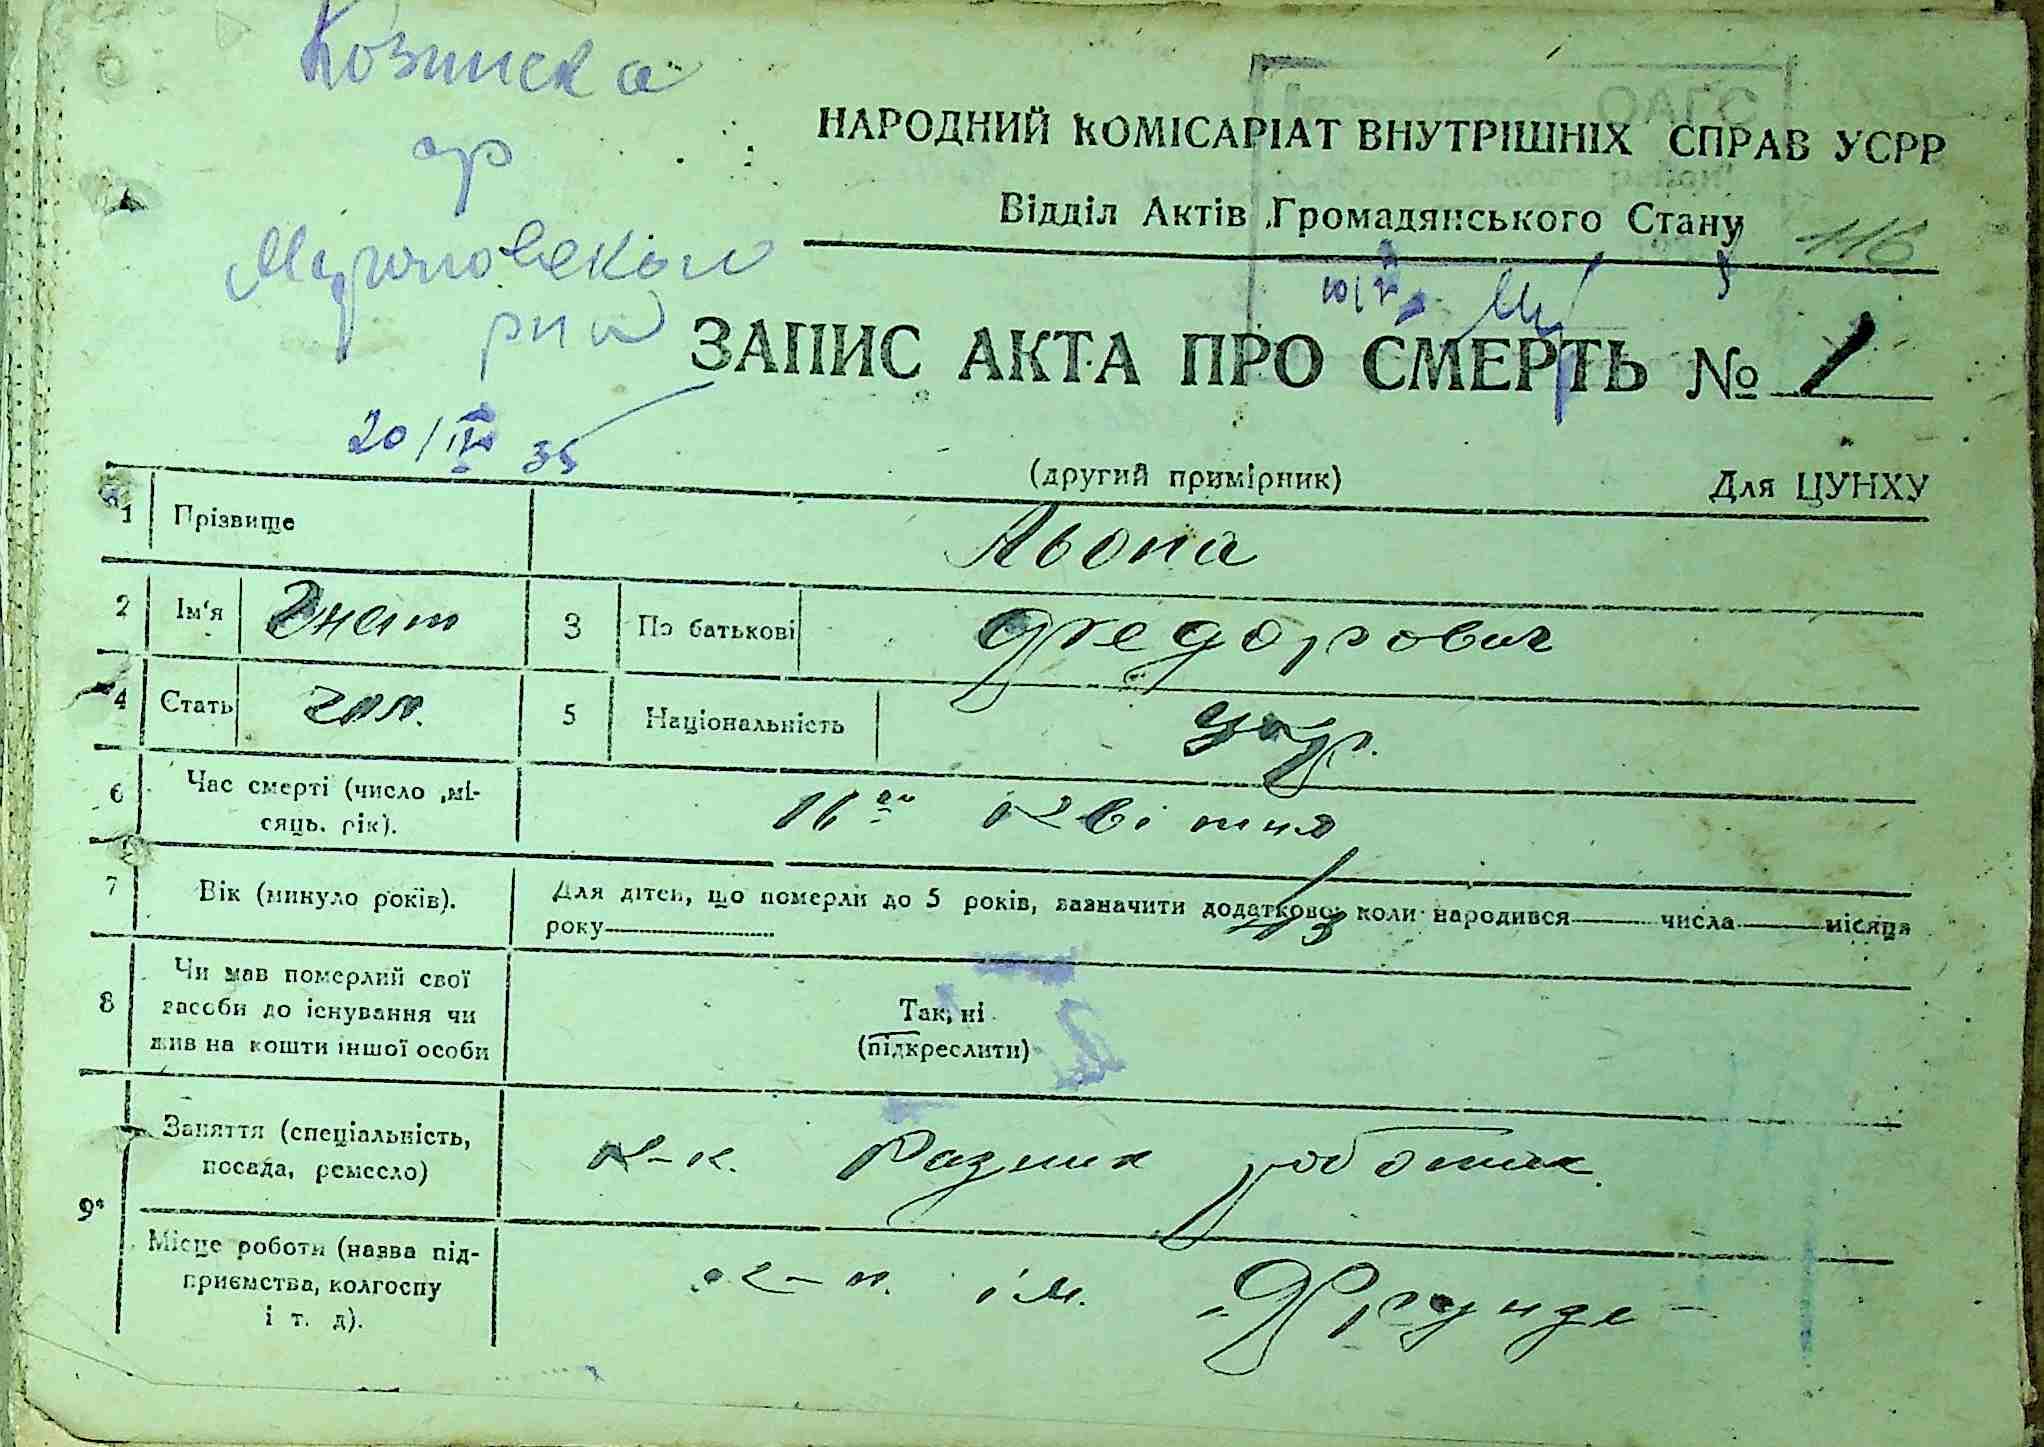 Козинска
ср
рна
НАРОДНИЙ КОМІСАРІАТ ВНУТРІШНІХ СПРАВ УСРР
Відділ Актів Громадянського Стану
116
ЗАПИС АКТА ПРО СМЕРТЬ № 1
20/IV 35
(другий примірник) Для ЦУНХУ
1 Прізвище Льопа
2 Ім'я Гнат 3 По батькові Федорович
4 Стать чол. 5 Національність укр.
6 Час смерті (число, мі-
сяць, рік). 16го квітня
7 Вік (минуло років). Для дітей, що померли до 5 років, зазначити додатково: коли народився числа місяця
року
8 Чи мав померлий свої
засоби до існування чи
жив на кошти іншої особи
Так, ні
(підкреслити)
9* Заняття (спеціальність,
посада, ремесло) к-к. Разний роботник.
Місце роботи (назва під-
приємства, колгоспу
і т. д). к-п. ім. „Фрунзе"